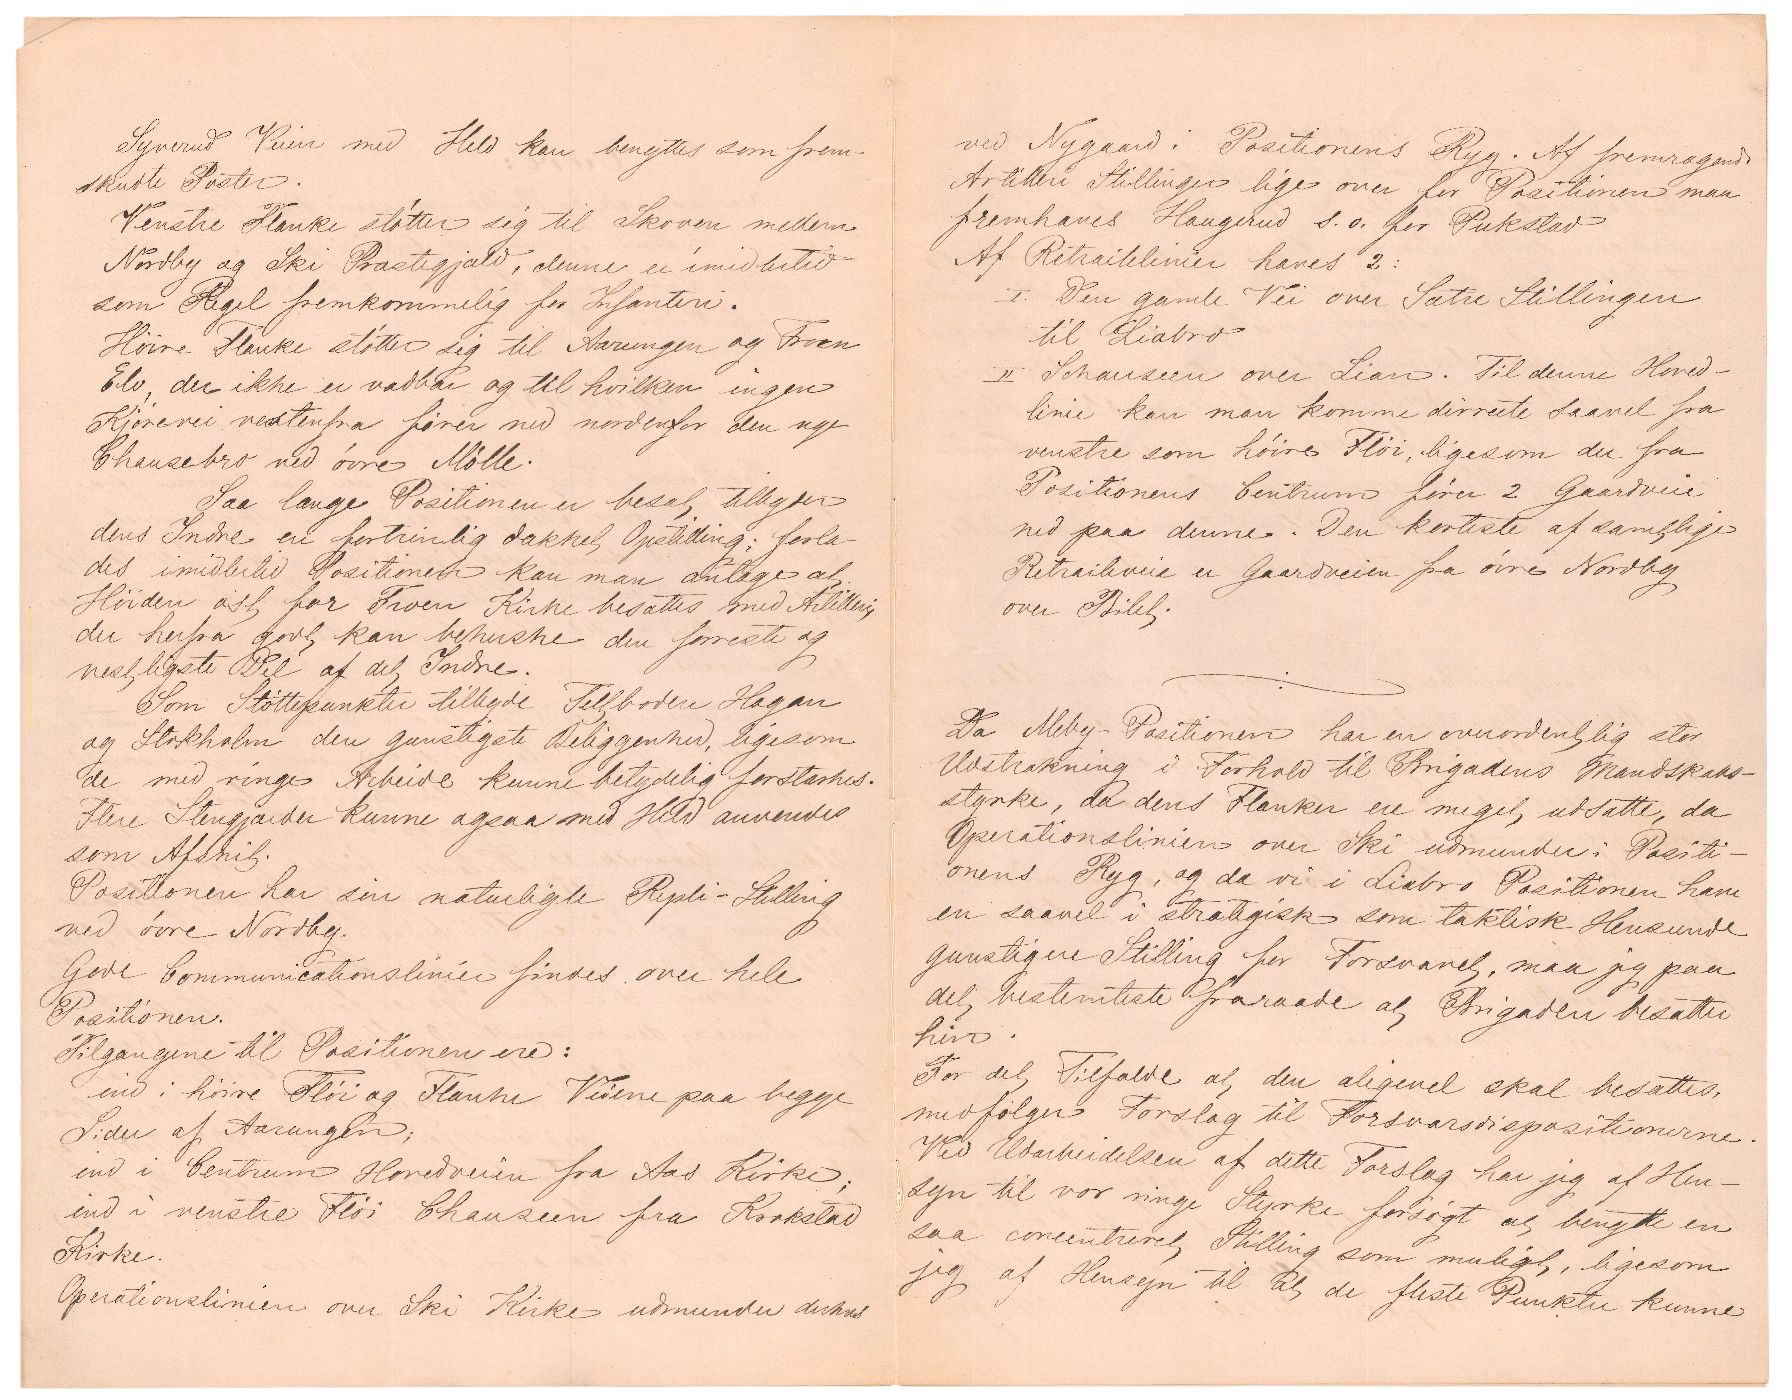 Syverud Veien med Held kan benyttes som frem-
skudte Poster.
Venstre Flanke støtter sig til Skoven mellem
Nordby og Ski Præstegjæld, denne er imidlertid
som Regel fremkommelig for Infanteri.
Høire Flanke støtter sig til Aarungen og Froen
Elv, der ikke er vadbar og til hvilken ingen
Kjørevei vestenfra fører ned nordenfor den nye
Chausebro ved øvre Mølle.
Saa længe Positionen er besat, tilbyder
dens Indre en fortrinlig dækket Opstilling; forla-
des imidlertid Positionen kan man antage at
Høiden øst for Froen Kirke besættes med Artilleri,
der herfra godt kan beherske den forreste og
vestligste Del af det Indre.
Som Støttepunkter tilbyde Teltboden Hagan
og Stokholm den gunstigste Beliggenhed, ligesom
de med ringe Arbeide kunne betydelig forstærkes.
Flere Stengjærder kunne ogsaa med Held anvendes
som Afsnit.
Positionen har sin naturligste Repli-Stilling
ved øvre Nordby.
Gode Communicationslinier findes over hele
Positionen.
Tilgangene til Positionen ere:
ind i høire Fløi og Flanke Veiene paa begge
Sider af Aarungen;
ind i Centrum Hovedveien fra Aas Kirke;
ind i venstre Fløi Chauseen fra Krokstad
Kirke.
Operationslinien over Ski Kirke udmunder derhos
ved Nygaard i Positionens Ryg. Af fremragende
Artilleri Stillinger lige over for Positionen maa
fremhæves Haugerud s.o. for Pukstad
Af Retraitelinier haves 2:
I. Den gamle Vei over Sætre Stillingen
til Liabro
II Schauseen over Lian. Til denne Hoved-
linie kan man komme dirrecte saavel fra
venstre som høire Fløi, ligesom der fra
Positionens Centrum fører 2 Gaardveie
ned paa denne. Den korteste af samtlige
Retraiteveie er Gaardveien fra øvre Nordby
over Bilet.
Da Meby-Positionen har en overordentlig stor
Udstrækning i Forhold til Brigadens Mandskabs-
styrke, da dens Flanker ere meget udsatte, da
Operationslinien over Ski udmunder i Positi-
onens Ryg, og da vi i Liabro Positionen have
en saavel i strategisk som taktisk Henseende
gunstigere Stilling for Forsvaret, maa jeg paa
det bestemteste fraraade at Brigaden besætter
hin.
For det Tilfælde at den aligevel skal besættes,
medfølger Forslag til Forsvarsdispositionerne.
Ved Udarbeidelsen af dette Forslag har jeg af Hen-
syn til vor ringe Styrke forsøgt at benytte en
saa concentreret Stilling som muligt, ligesom
jeg af Hensyn til at de fleste Punkter kunne